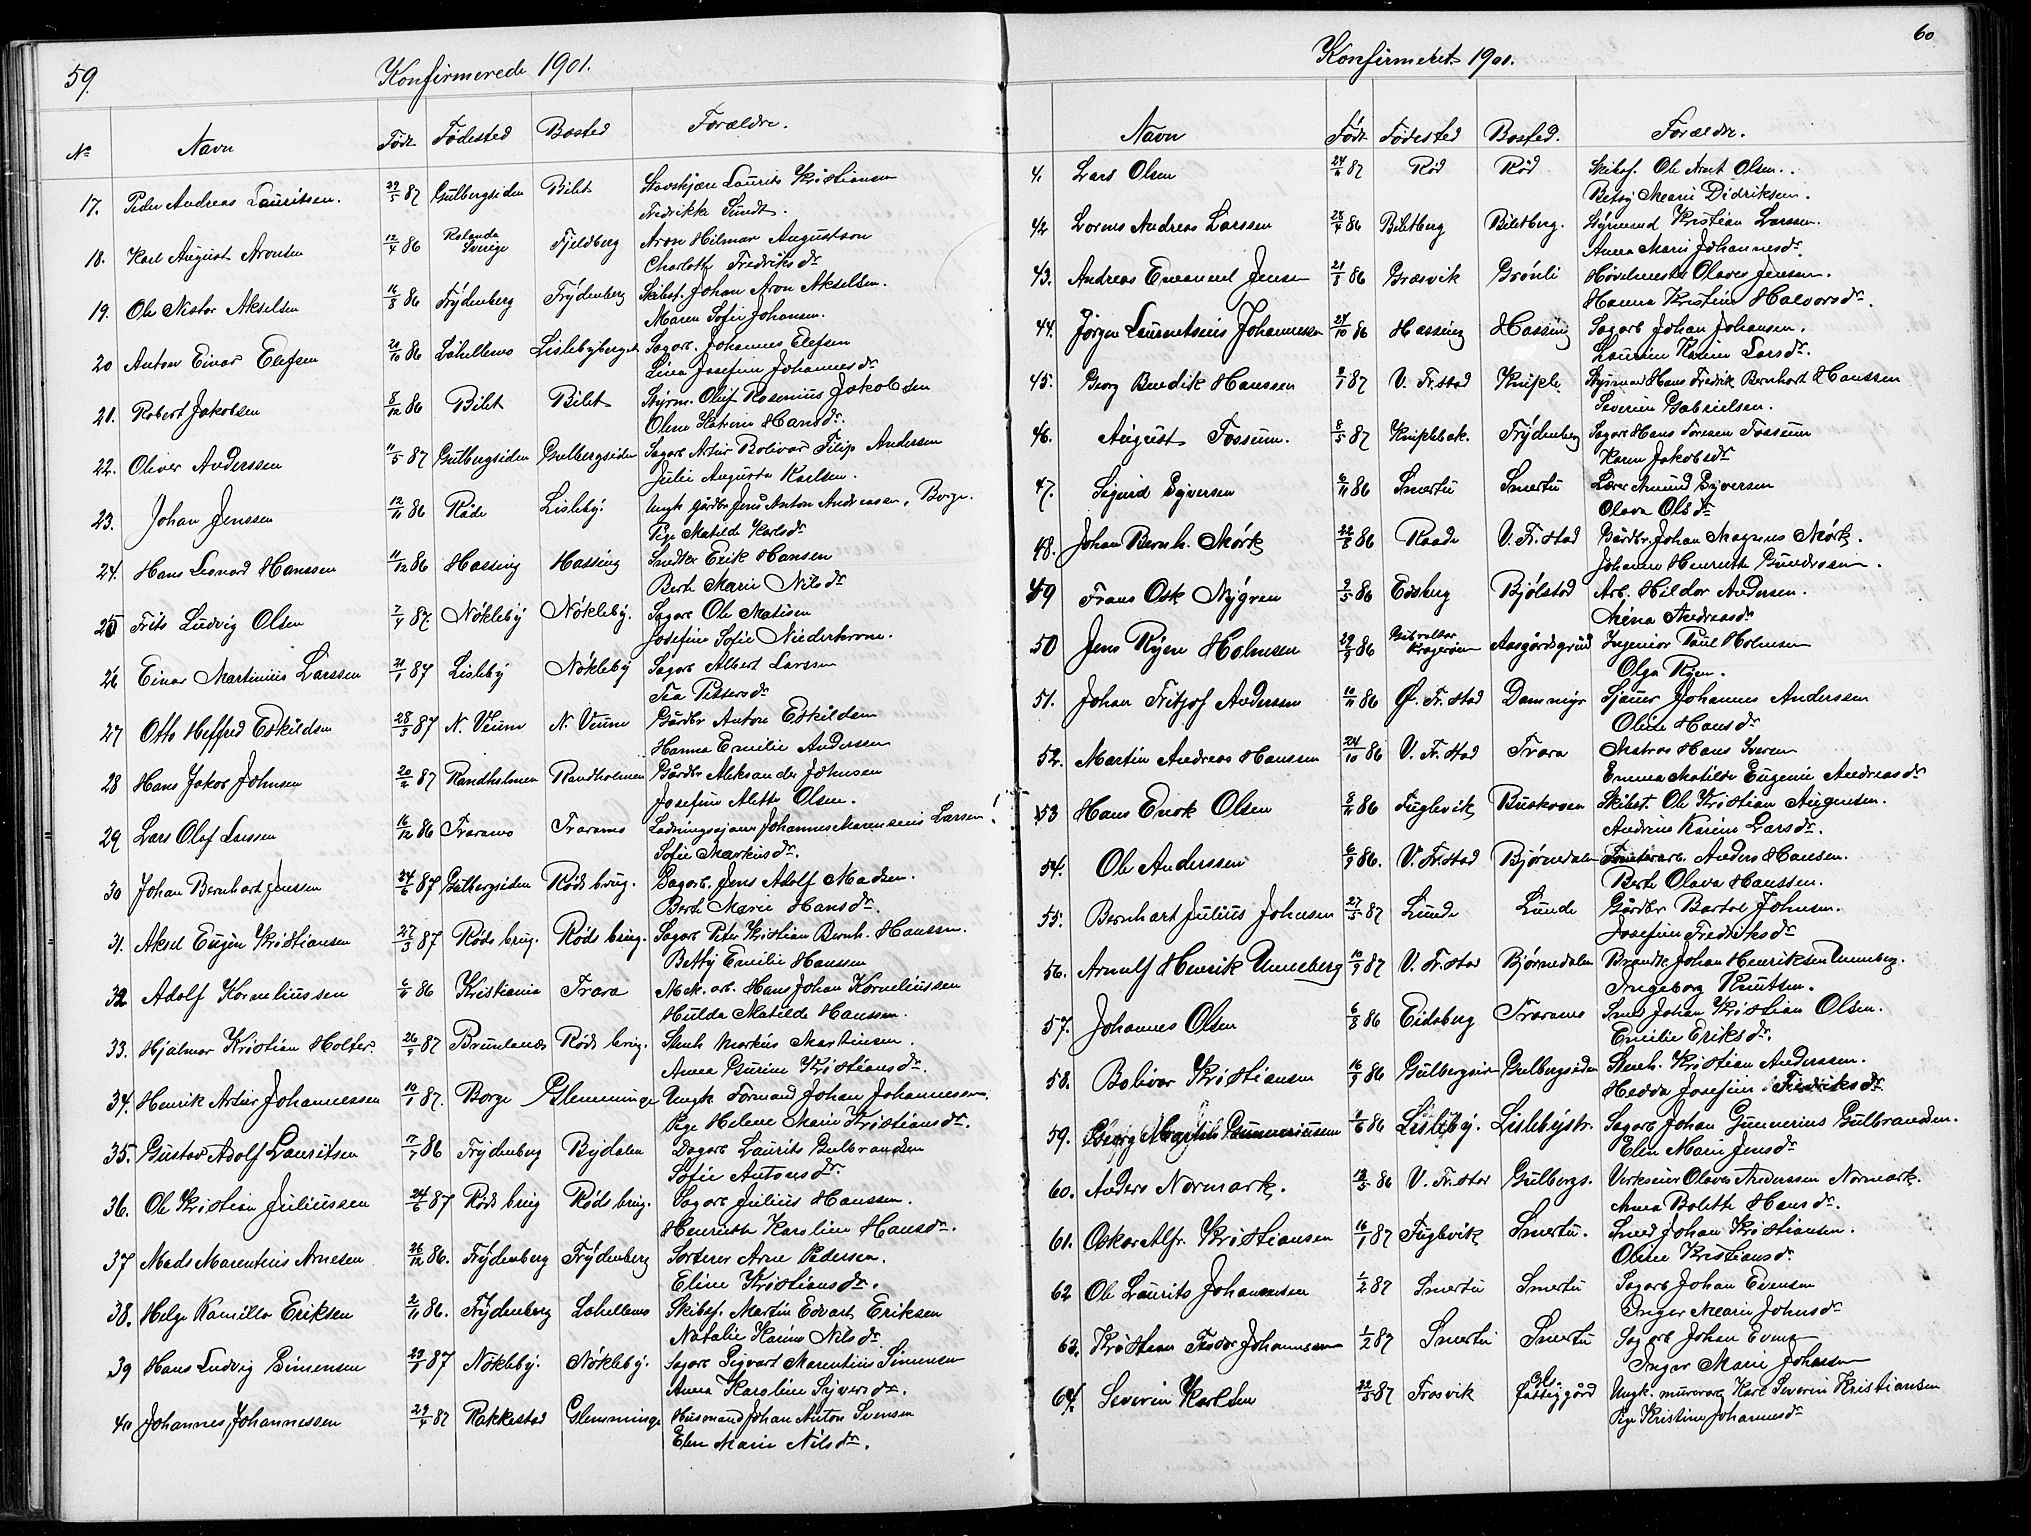 59.
Konfirmerede 1901.
No Navn Født Fødested Bosted Forældre.
17. Peder Andreas Lauritsen. 29/5 87 Gulbergsiden Bilet Skovskjære Laurits Kristiansen
Fredrikke Sundt.
18. Karl August Aronsen 12/4 86 Rolanda Sverige Fjeldberg Aron Hilmar Augustson
Charlotte Fredriksdr
19. Ole Nestor Akselsen 16/8 86 Frydenberg Frydenberg Skibst. Johan Aron Akselsen.
Maren Sofie Johansen.
20 Anton Einar Elefsen 20/10 86 Lahellemo Lislebyberget Sagarb. Johannes Elefsen
Lina Josefine Johannesdr
21. Robert Jakobsen 8/12 86 Bilet Bilet Styrm. Oluf Rosenius Jakobsen
Oline Katrine Hansdr.
22. Oliver Anderssen 11/5 87 Gulbergsiden Gulbergsiden Sagarb Artur Bolivar Filip Andersen
Julie Augusta Karlsen.
23. Johan Jenssen 12/11 86 Råde Lisleby. Ungk gårdbr Jens Anton Andreassen, Borge.
Pige Matilde Karlsdr
24. Hans Leonard Hanssen 11/12 86 Hassing Hassing Snedker Erik Hansen
Berte Marie Nilsdr
25 Frits Ludvig Olsen 7/4 87. Nøkleby Nøkleby. Sagarb Ole Matisen
Josefine Sofie Niederkrone.
26 Einar Martinius Larssen 21/1 87 Lisleby Nøkleby Sagarb Albert Larssen
Tea Pettersdr
27 Otto Heffred Eskildsen 28/3 87 N. Veum N. Veum Gårdbr Anton Eskildsen
Hanna Emilie Anderssen
28 Hans Jakob Johnsen 20/2 87 Randholmen Randholmen Gårdbr Aleksander Johnsen
Josefine Alette Olsen.
29 Lars Olaf Larssen 16/12 86 Traramo Traramo Ladningssjauer Johannes Marensius Larsen!
Sofie Markusdr.
30 Johan Bernhart Jenssen 24/6 87 Gulbergsiden Røds brug. Sagarb. Jens Adolf Madsen.
Berte Marie Hansdr.
31. Aksel Eugen Kristiansen 27/3 87 Røds brug. Røds brug. Sagarb Peter Kristian Bernh. Hanssen.
Betty Emilie Hanssen
32 Adolf Korneliussen 6/11 86 Kristiania Trara Mek. arb. Hans Johan Korneliussen
Hulda Matilde Hanssen.
33. Hjalmar Kristian Holter. 26/9 87 Brunlanes Røds brug. Stenh Markus Martinsen.
Anna Gurine Kristiansdr.
34. Henrik Artur Johannessen 10/1 87. Borge Glemminge Ungk Formand Johan Johannessen.
Pige Helene Marie Kristiansdr.
35. Gustav Adolf Lauritsen 7/7 86 Frydenberg Bydalen Dagarb Laurits Gulbrandsen
Sofie Antonsdr.
36. Ole Kristian Juliussen 24/6 87 Røds brug Røds brug. Sagarb Julius Hanssen.
Henriette Karoline Hansdr.
37 Mads Marentius Arnesen 26/12 86. Frydenberg Frydenberg Sorterer Arne Pedersen.
Eline Kristiansdr.
38. Helge Kamillo Eriksen 2/11 86. Frydenberg Lahellemo Skibsf. Martin Edvart Eriksen
Natalie Karine Nilsdr.
39 Hans Ludvig Simensen 23/3 87 Nøkleby. Nøkleby. Sagarb Sigvart Marentius Simensen
Anna Karoline Syversdr.
40 Johannes Johannessen 29/4 87 Rakkestad Glemminge Husmand Johan Anton Svensen
Elen Marie Nilsdr.
60
Konfirmeret 1901.
Navn Født Fødested Bosted. Forældre.
4. Lars Olsen 24/4 87 Rød Rød Skibsf. Ole Arnt Olsen.
Betsy Marie Didriksen.
42 Lorens Andreas Larssen 28/4 86 Biletberg Biletberg. Styrmand Kristian Larssen.
Anna Marie Johannesdr.
43. Andreas Emanuel Jensen 21/8 86 Græsvik Grønli Høvelmester Olaves Jensen.
Hanna Kristine Halvorsdr.
44. Jørgen Lauentsius Johannessen 24/10 86 Hassing Hassing Sagarb Johan Johansen.
Laurine Karine Larsdr.
45. Georg Bendik Hanssen 9/1 87 V. Fr.stad Kniple. Styrmand Hans Fredrik Bernhart Hanssen
Severine Gabrielsen.
46. August Fossum. 8/5 87 Kniplebak. Frydenberg Sagarb Hans Toresen Fossum
Karen Jakobsdr
47. Sigurd Syversen 6/11 86 Smertu Smertu Lærer Amund Syversen
Olava Olsdr
48. Johan Bernh. Mørk 22/8 86 Raade V. Fr.stad Gårdbr. Johan Magnus Mørk.
Johanne Henriette Gundersen.
49 Frans Osk Nygren 9/5 86 Edsberg Bjølstad Arb. Hildor Andersen.
Mina Andreasdr
50 Jens Ryen Holmsen 29/9 86 Gibraltar Kragerøen Aasgårdsgrund Ingeniør Paul Holmsen
Olga Ryen.
51. Johan Fritjof Anderssen 10/11 86 Ø. Fr.stad Dammyr Sjauer Johannes Anderssen
Oline Hansdr
52. Martin Andreas Hanssen 24/10 86 V. Fr.stad Trara Matros Hans Iversen
Emma Matilde Eugenie Andreasdr
53 Hans Enok Olsen 8/11 86 Fuglevik Buskoven Skibst. Ole Kristian Augensen.
Andrine Karine Larsdr.
54. Ole Anderssen 6/9 86. V. Fr.stad Bjørnedalen Tomtearb. Anders Hansen.
Berte Olava Hanssen.
55. Bernhart Julius Johnsen 27/5 87 Lunde Lunde Gårdbr Bartol Johnsen.
Josefine Fredriksdr
56. Arnulf Henrik Unneberg 10/9 87 V. Fr.stad Bjørnedalen Brandk Johan Henriksen Unneberg.
Ingeborg Knutsen.
57. Johannes Olsen 6/8 86 Eidsberg Traramo Smed Johan Kristian Olsen.
Emilie Eriksdr.
58. Bolivar Kristiansen 16/9 86 Gulbergsid Gulbergsiden Stenh. Kristian Anderssen.
Hedda Josefine Fredriksdr
59. Georg Martin Gunneriussen 1/6 86 Lisleby. Lislebystr. Sagarb Johan Gunnerius Gulbrandsen.
Elen Marie Jensdr
60. Anders Normark. 13/5 86 V. Fr.stad Gulbergs. Verkseier Olaves Anderssen Normark.
Anna Bolette Hansdr.
61. Oskar Alfr. Kristiansen 16/1 87 Fuglevik Smertu. Smed Johan Kristiansen.
Oline Kristiansdr.
62 Ole Laurits Johannesen 1/2 87 Smertu Smertu Sagarb Johan Evensen
Inger Marie Johnsdr
63. Kristian Teodor Johannesen 1/2 87 Smertu Smertu Sagarb Johan Evens
Inger Marie Johnssen
64. Severin Karlsen 22/5 87 Trosvik Gl. fattiggård Ungk. murerarb Karl Severin Kristiansen
Pige Kristine Johannesdr